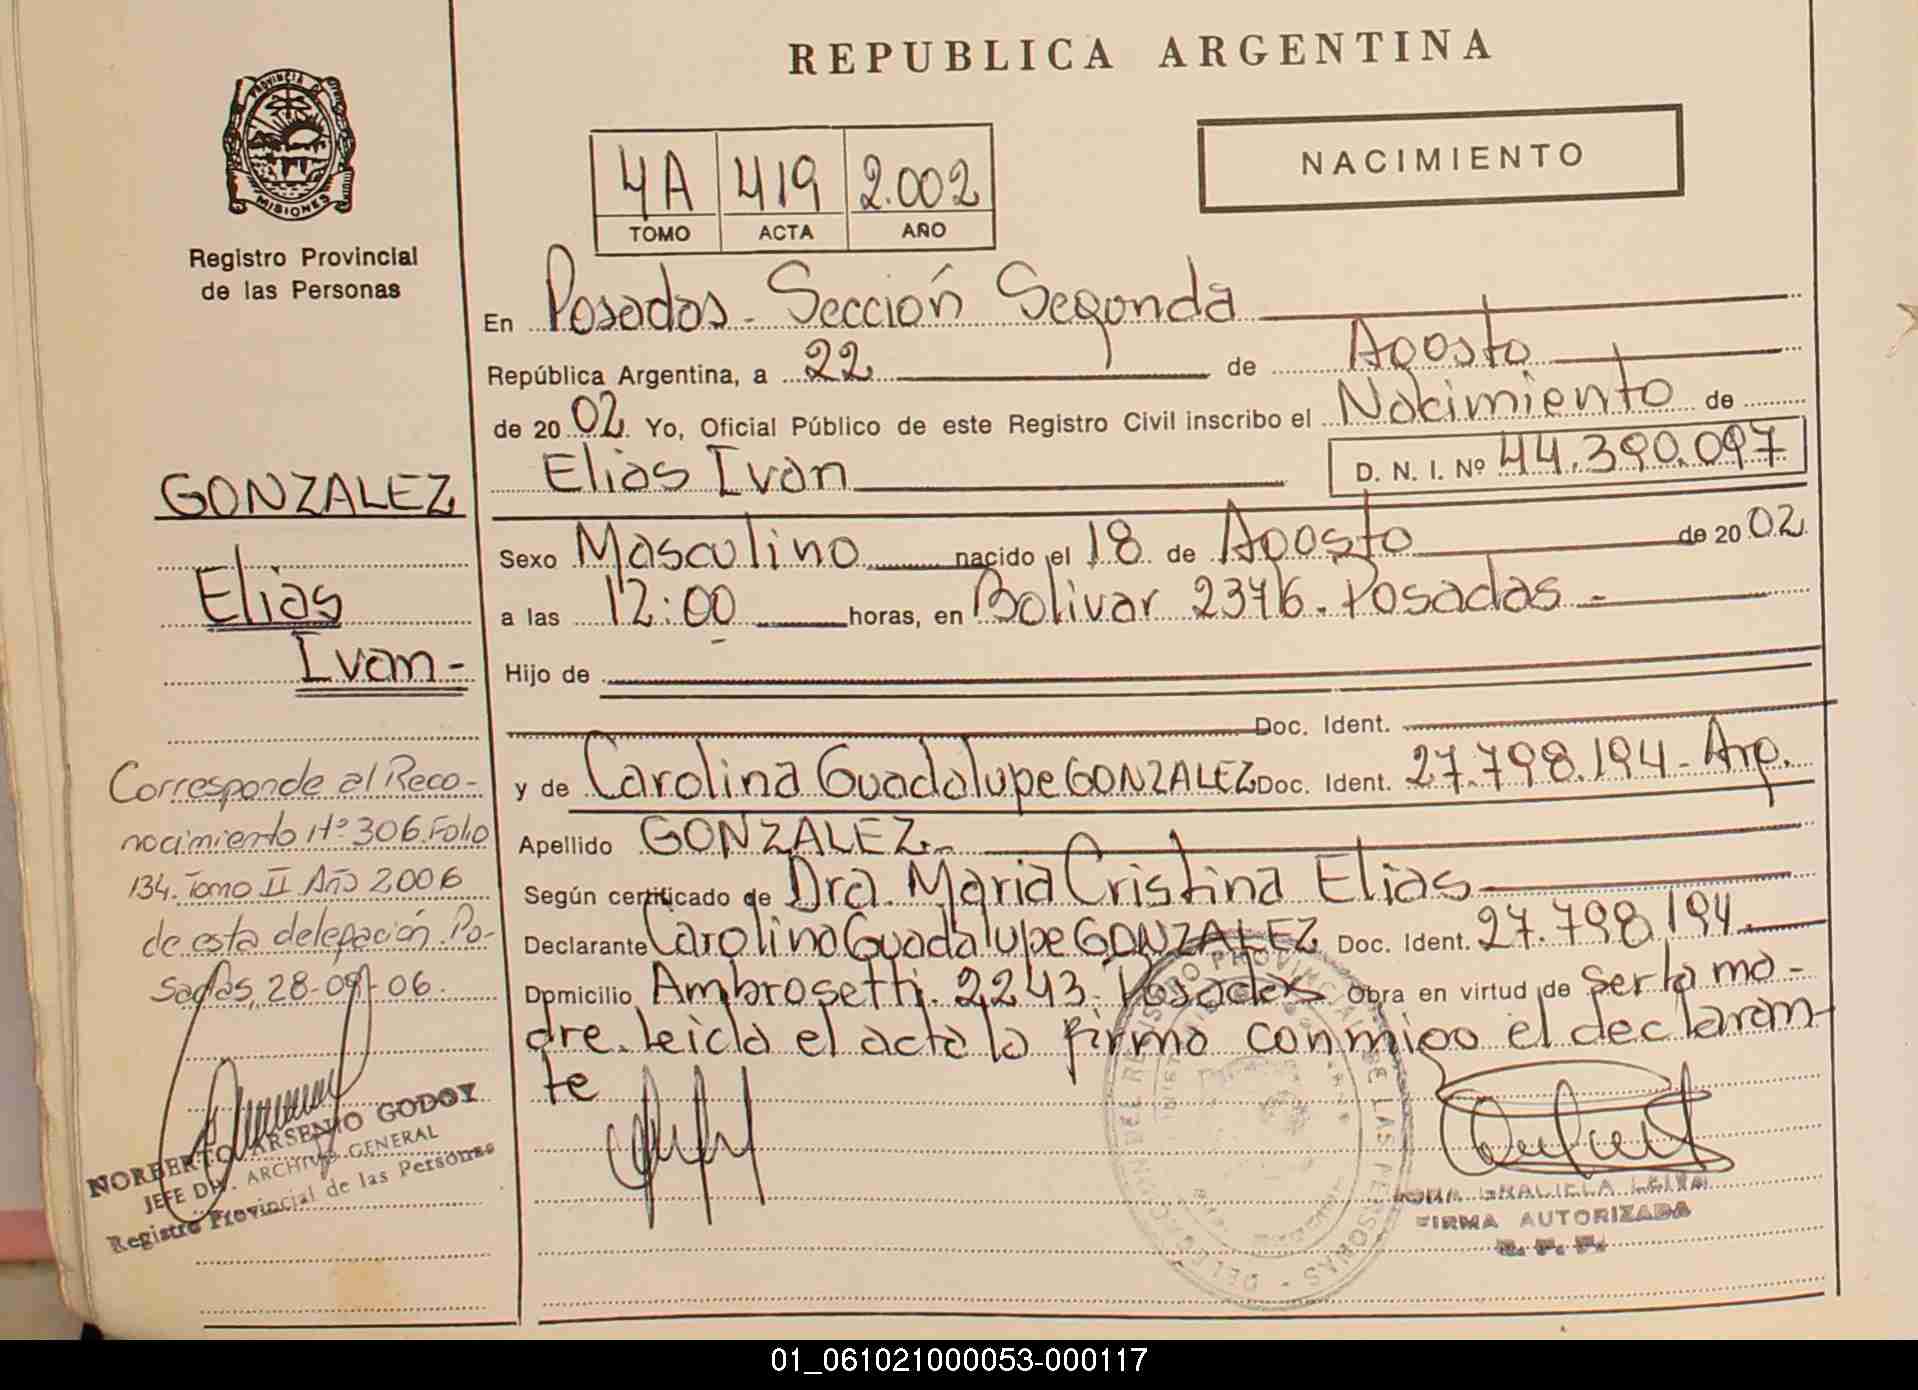 REPUBLICA ARGENTINA
PROVINCIA DE
MISIONES
Registro Provincial
de las Personas
4A 419 2.002
TOMO ACTA AÑO
NACIMIENTO
En Posadas - Sección Segunda
República Argentina, a 22 de Agosto
de 2002 Yo, Oficial Público de este Registro Civil inscribo el Nacimiento de
Elias Ivan D. N. I. Nº 44.390.097
Sexo Masculino nacido el 18 de Agosto de 2002
a las 12:00 horas, en Bolivar 2376. Posadas -
Hijo de
Doc. Ident.
y de Carolina Guadalupe GONZALEZ Doc. Ident. 27.798.194 - Arg.
Apellido GONZALEZ -
Según certificado de Dra. Maria Cristina Elias
Declarante Carolina Guadalupe GONZALEZ Doc. Ident. 27.798.194.
Domicilio Ambrosetti. 2243. Posadas Obra en virtud de ser la ma-
dre. Leida el acta la firma conmigo el declaran-
te
GONZALEZ
Elias
Ivan -
Corresponde al Reco-
nocimiento Nº 306. Folio
134. Tomo II Año 2006
de esta delegación. Po-
sadas, 28-09-06.
NORBERTO ARSENIO GODOY
JEFE DIV. ARCHIVO GENERAL
Registro Provincial de las Personas
GRACIELA LEIVA
FIRMA AUTORIZADA
R. P. P.
01_061021000053-000117